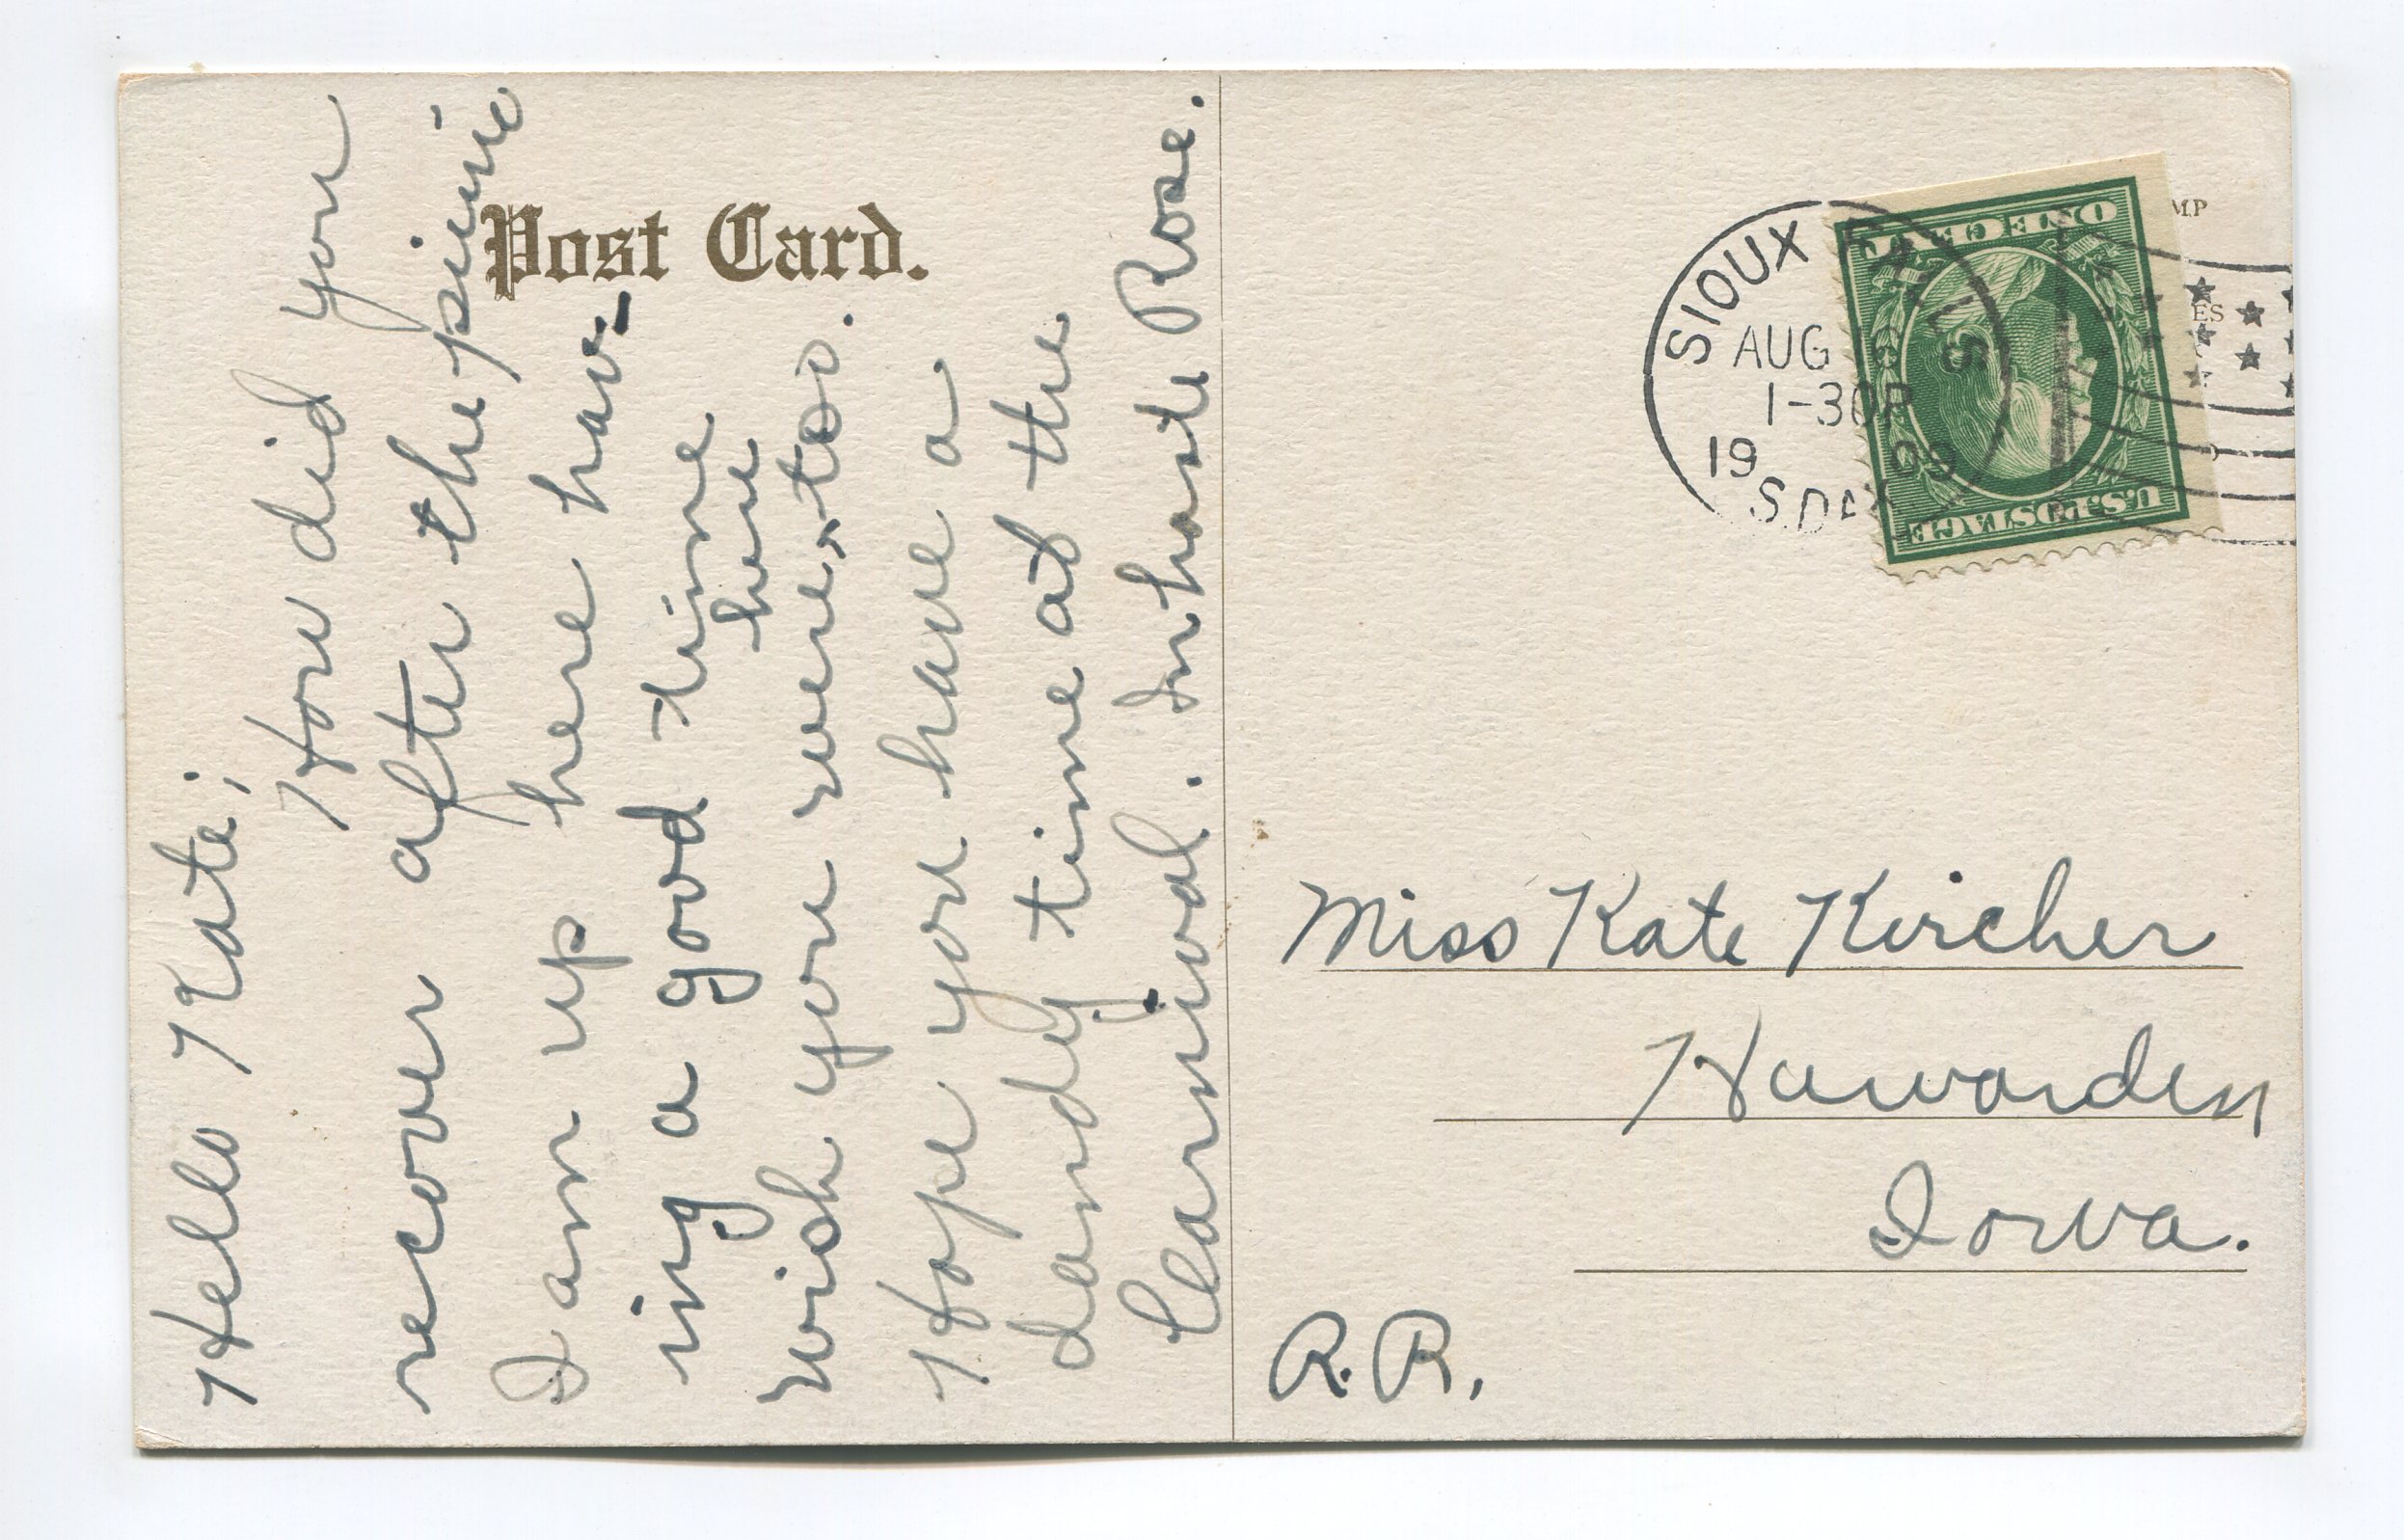 Post Card.
Hello Kate;
How did you
recover after the picnic
I am up here hav-
ing a good time
here
wish you were, too.
Hope you have a
dandy time at the
Carnival. In haste Rose.
SIOUX FALLS
AUG
1-30P
19 09
S.DAK
ONE CENT
U.S. POSTAGE
Miss Kate Kircher
Hawarden
Iowa.
R.R.